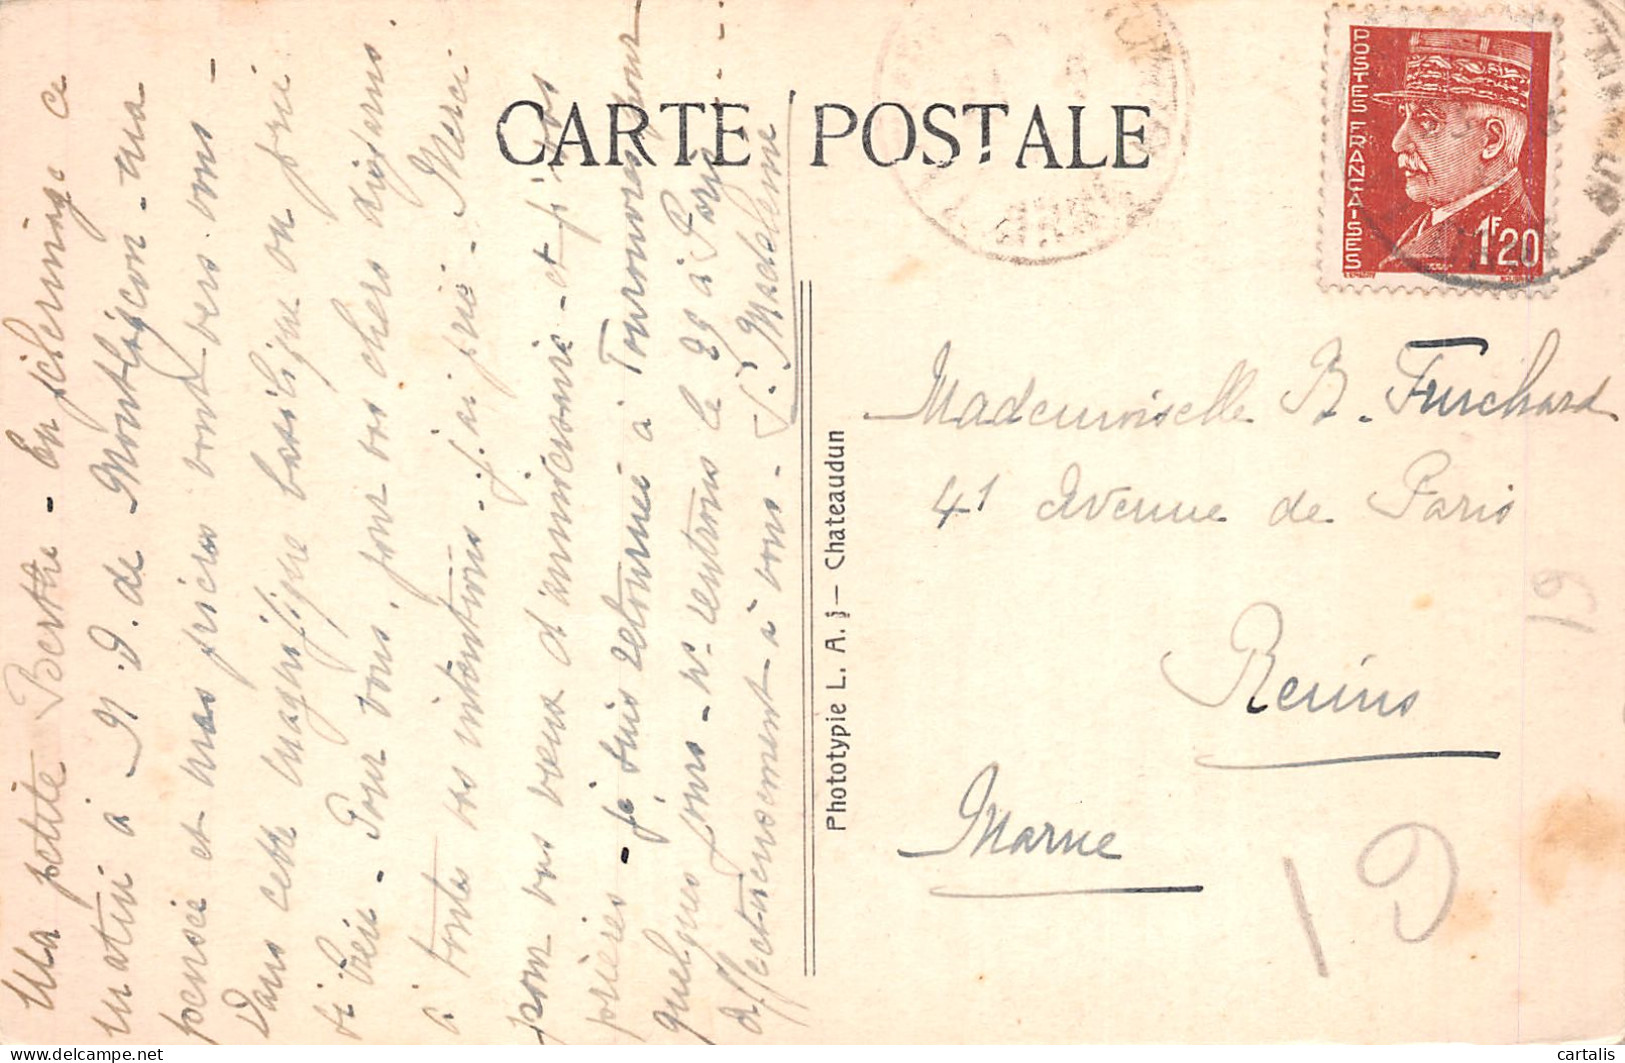 CARTE POSTALE
POSTES FRANÇAISES
1F20
Ma petite Berthe - En pèlerinage ce
matin à N. D. de Montligeon - ma
pensée et mes prières vont vers vous -
Dans cette magnifique basilique on prie
si bien - Pour vous, pour vos chers disparus
à toutes vos intentions - j'ai prié - Merci
pour vos voeux d'anniversaire - et
prières - je suis retournée à pour
quelques jours - rentrons le 29 à Paris -
affectueusement à vous - Madeleine
Phototypie L. A. - Chateaudun
Mademoiselle B. Fruchard
41 Avenue de Paris
Reims
Marne
19
19
cartalis